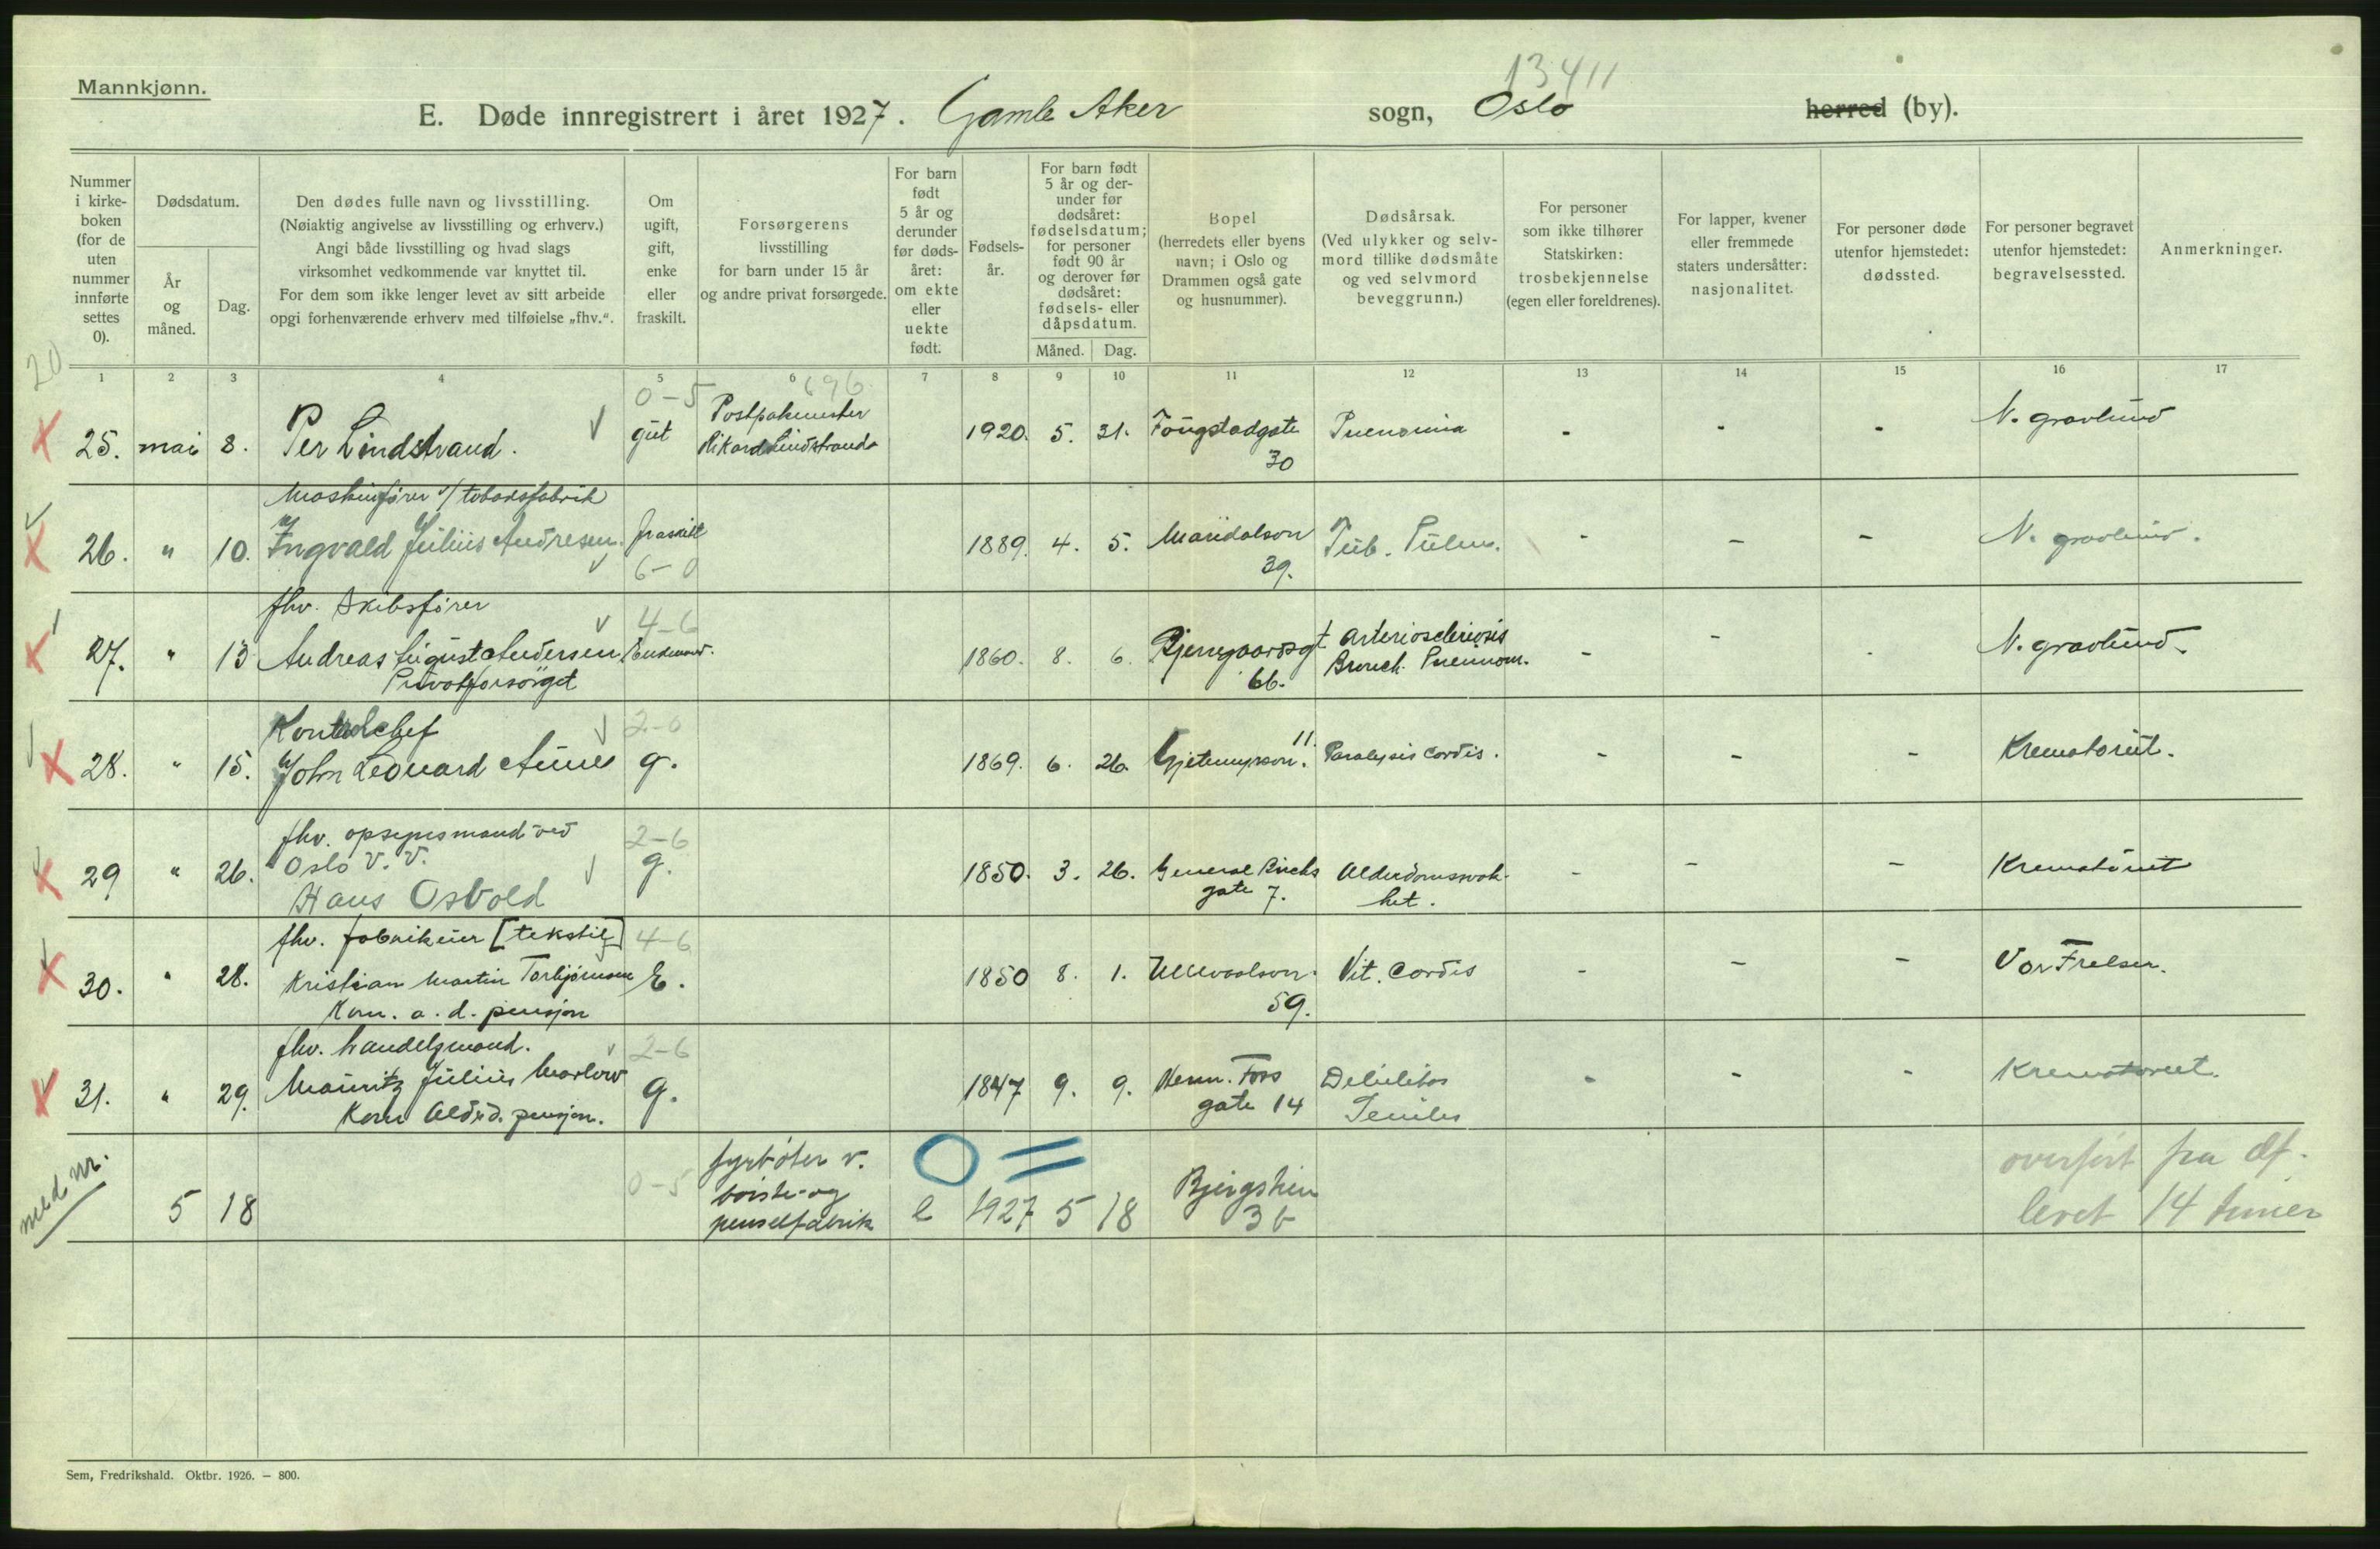 Mannkjønn.
13411
E. Døde innregistrert i året 1927. Gamle Aker sogn, Oslo herred (by).
Nummer i kirke-boken (for de uten nummer innførte settes 0).
Dødsdatum.
År og måned.
Dag.
Den dødes fulle navn og livsstilling.
(Nøiaktig angivelse av livsstilling og erhverv.)
Angi både livsstilling og hvad slags
virksomhet vedkommende var knyttet til.
For dem som ikke lenger levet av sitt arbeide
opgi forhenværende erhverv med tilføielse „fhv.“.
Om ugift, gift, enke eller fraskilt.
Forsørgerens
livsstilling
for barn under 15 år
og andre privat forsørgede.
For barn født 5 år og derunder før døds-året: om ekte eller uekte født.
Fødsels-år.
For barn født 5 år og der-under før dødsåret: fødselsdatum; for personer født 90 år og derover før dødsåret: fødsels- eller dåpsdatum.
Måned. Dag.
Bopel
(herredets eller byens
navn; i Oslo og
Drammen også gate
og husnummer).
Dødsårsak.
(Ved ulykker og selv-
mord tillike dødsmåte
og ved selvmord
beveggrunn.)
For personer
som ikke tilhører
Statskirken:
trosbekjennelse
(egen eller foreldrenes).
For lapper, kvener
eller fremmede
staters undersåtter:
nasjonalitet.
For personer døde
utenfor hjemstedet:
dødssted.
For personer begravet
utenfor hjemstedet:
begravelsessted.
Anmerkninger.
20
1 2 3 4 5 6 7 8 9 10 11 12 13 14 15 16 17
0-5 696
25. mai 8. Per Lindstrand. gut Rikard Lindstrand 1920. 5. 31. 30 - - - N. gravlund
Maskinfører v/ tobaksfabrik
26. " 10. Ingvald Julius Andresen. fraskilt 1889. 4. 5. Maridalsvn 39. Tub. Pulm. - - - N. gravlund.
6-0
fhv. Skibsfører 4-6
27. " 13 Andreas August Andersen Enkemand. 1860. 8. 6. Bjerregaardsgt 66. Arteriosclerosis Bronch. Pneumon. - - - N. gravlund.
Privatforsørget
Kontorchef 2-0
28. " 15. John Leonard Aune g. 1869. 6. 26. Gjetemyrsvn. 11. Paralysis cordis. - - - Krematoriet.
fhv. opsynsmand ved 2-6
Oslo V. V.
29 " 26. Hans Osvold g. 1850. 3. 26. General Birchs gate 7. Alderdomssvak-het. - - - Krematoriet
fhv. fabrikeier [tekstil] 4-6
30. " 28. Kristian Martin Torbjørnsen E. 1850 8. 1. Ullevoalsvn. 59. Vit. Cordis - - - Vor Frelser.
Kom. a. d. pensjon
fhv. handelsmand. 2-6
31. " 29. Mauritz Julius Marlow g. 1847 9. 9. Herm. Foss gate 14 Debilitas Senilis - - - Krematoriet.
Kom Alderd. pensjon.
med nr.
5 18 0-5 fyrbøter v. børste-og penselfabrik e 1927 5 18 Bjergstien 3b overført fra df.
levet 14 timer
Sem, Fredrikshald. Oktbr. 1926. – 800.